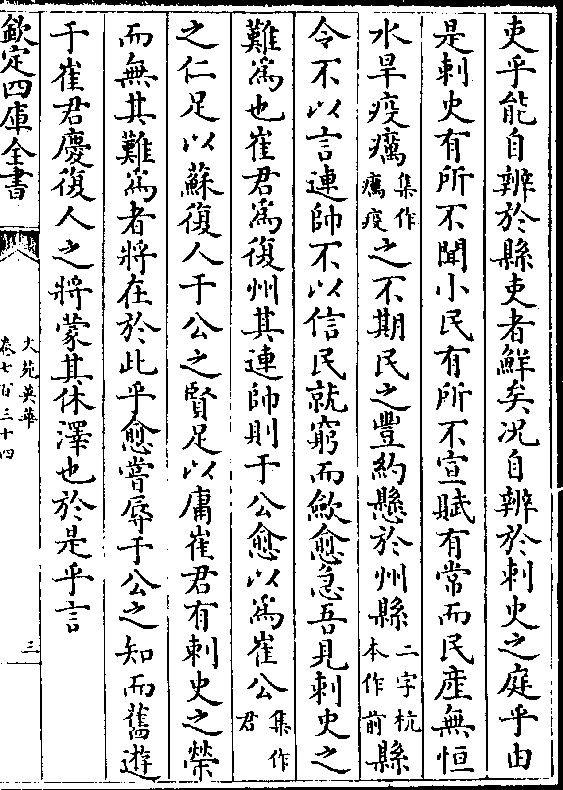 吏乎能自辨於縣吏者鮮矣况自辨於刺史之庭乎由
是刺史有所不聞小民有所不宣賦有常而民產無恒
水旱疫癘集作癘疫之不期民之豐約懸於州縣二字杭本作前縣
令不以言連帥不以信民就窮而歛愈急吾見刺史之
難爲也崔君爲復州其連帥則于公愈以爲崔公集作君
之仁足以蘇復人于公之賢足以庸崔君有刺史之榮
而無其難爲者將在於此乎愈嘗辱于公之知而舊遊
于崔君慶復人之將蒙其休澤也於是乎言
欽定四庫全書
文苑英華
卷七百三十四
三